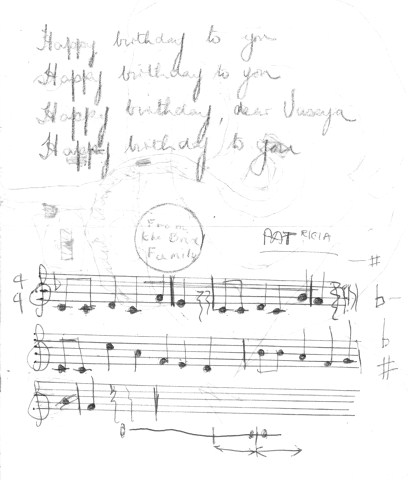 Happy birthday to you
Happy birthday to you
Happy birthday, dear
Happy birthday to you
From
the
Family
4
4